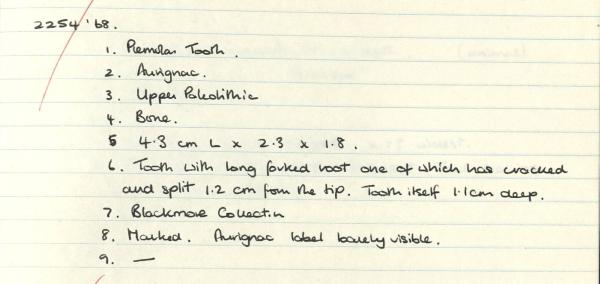 2254/'68.
1. Premolar Tooth.
2. Aurignac.
3. Upper Paleolithic
4. Bone.
5 4.3 cm L x 2.3 x 1.8.
6. Tooth with long forked root one of which has cracked
and split 1.2 cm from the tip. Tooth itself 1.1cm deep.
7. Blackmore Collectin
8. Marked. Aurignac label barely visible.
9. —